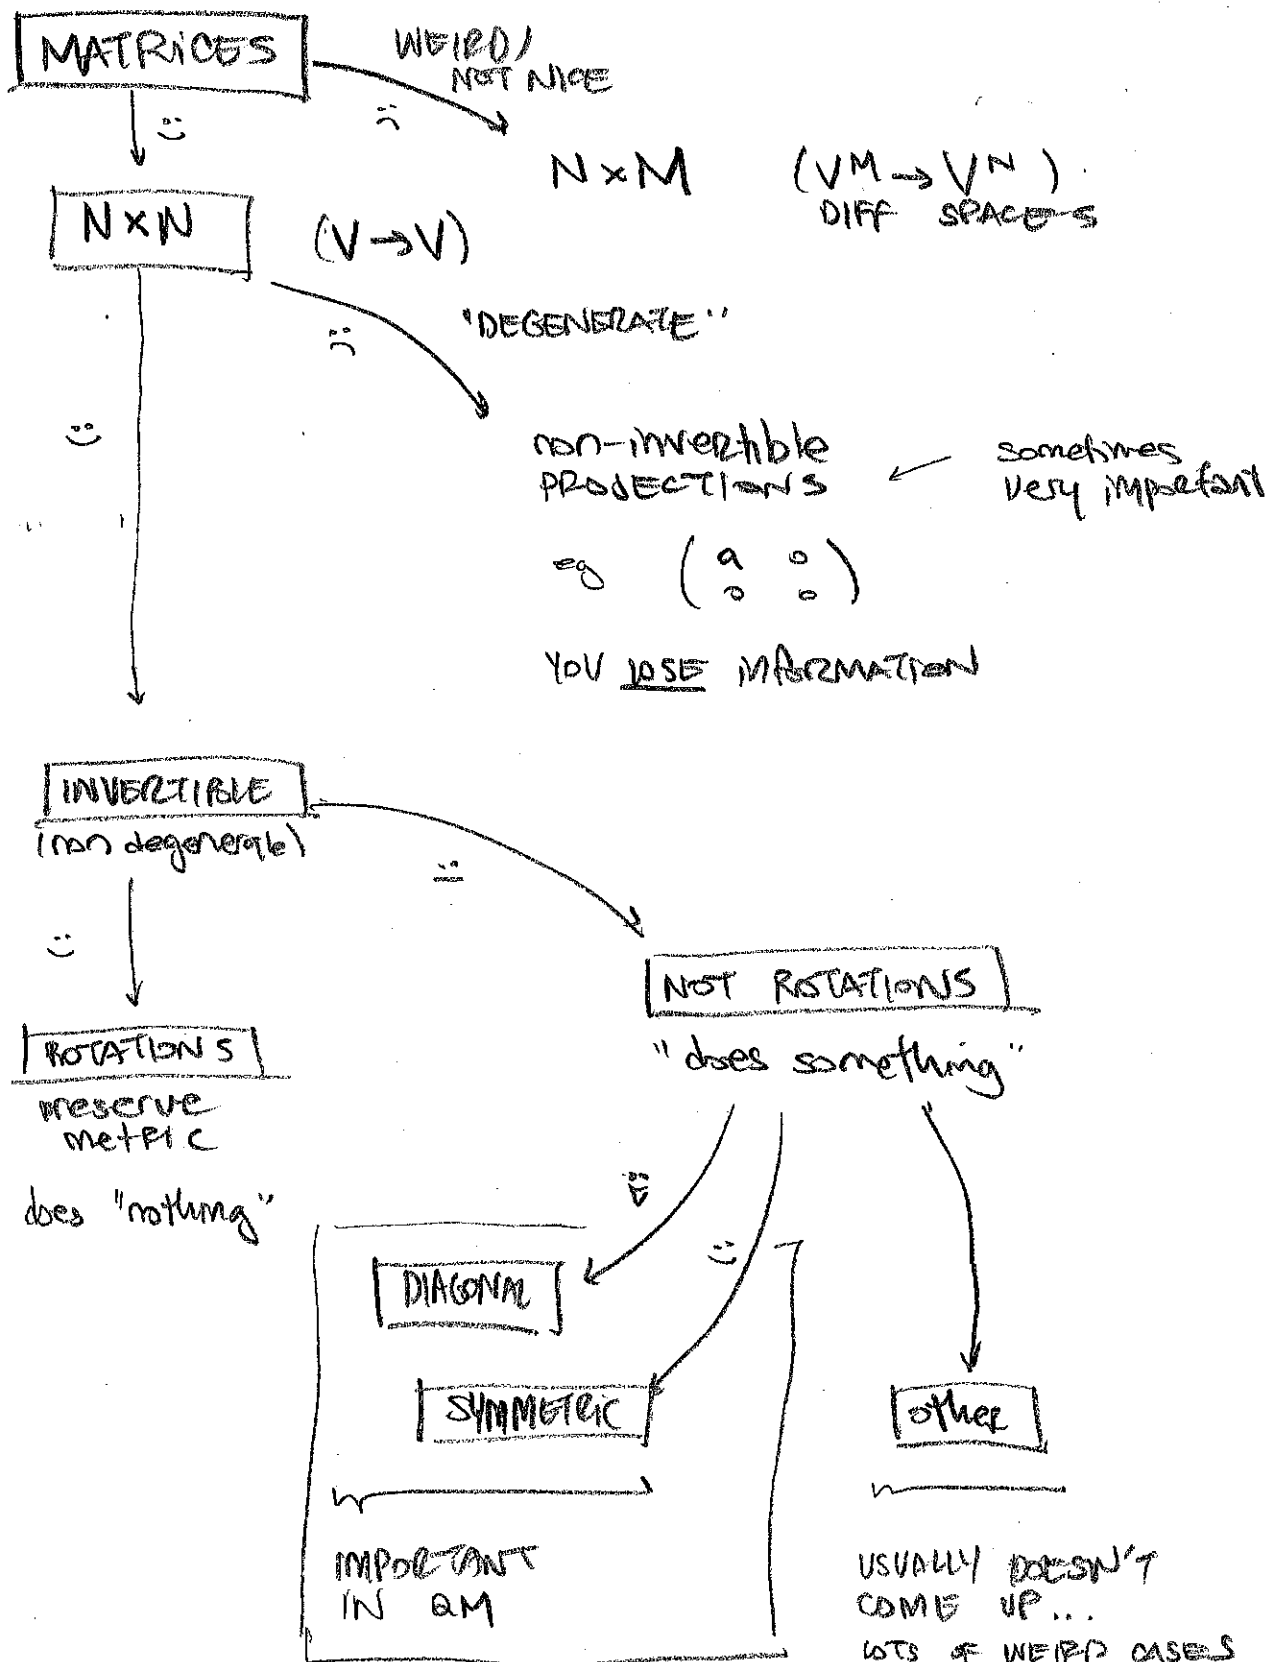 MATRICES
WEIRD/
NOT NICE
N×M (V^M → V^N)
DIFF SPACES
N×N (V → V)
"DEGENERATE"
non-invertible
PROJECTIONS
sometimes
very important
eg ( a 0
0 0 )
YOU LOSE INFORMATION
INVERTIBLE
(non degenerate)
NOT ROTATIONS
"does something"
ROTATIONS
preserve
metric
does "nothing"
DIAGONAL
SYMMETRIC
other
IMPORTANT
IN QM
USUALLY DOESN'T
COME UP...
LOTS OF WEIRD CASES